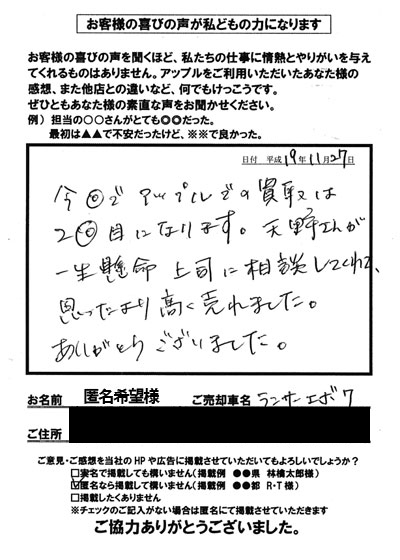 お客様の喜びの声が私どもの力になります
お客様の喜びの声を聞くほど、私たちの仕事に情熱とやりがいを与え
てくれるものはありません。アップルをご利用いただいたあなた様の
感想、また他店との違いなど、何でもけっこうです。
ぜひともあなた様の素直な声をお聞かせください。
例） 担当の○○さんがとても◎◎だった。
最初は▲▲で不安だったけど、※※で良かった。
日付 平成 19年 11月 27日
今回で アップルでの買取は
2回目になります。天野さんが
一生懸命 上司に相談してくれて、
思ったより高く売れました。
ありがとうございました。
お名前 匿名希望様 ご売却車名 ランサーエボ7
ご住所
ご意見・ご感想を当社のHPや広告に掲載させていただいてもよろしいでしょうか？
□実名で掲載しても構いません(掲載例 ●●県 林檎太郎様)
☑匿名なら掲載して構いません(掲載例 ●●都 R・T様)
□掲載したくありません
※チェックのご記入がない場合は匿名にて掲載させていただきます
ご協力ありがとうございました。